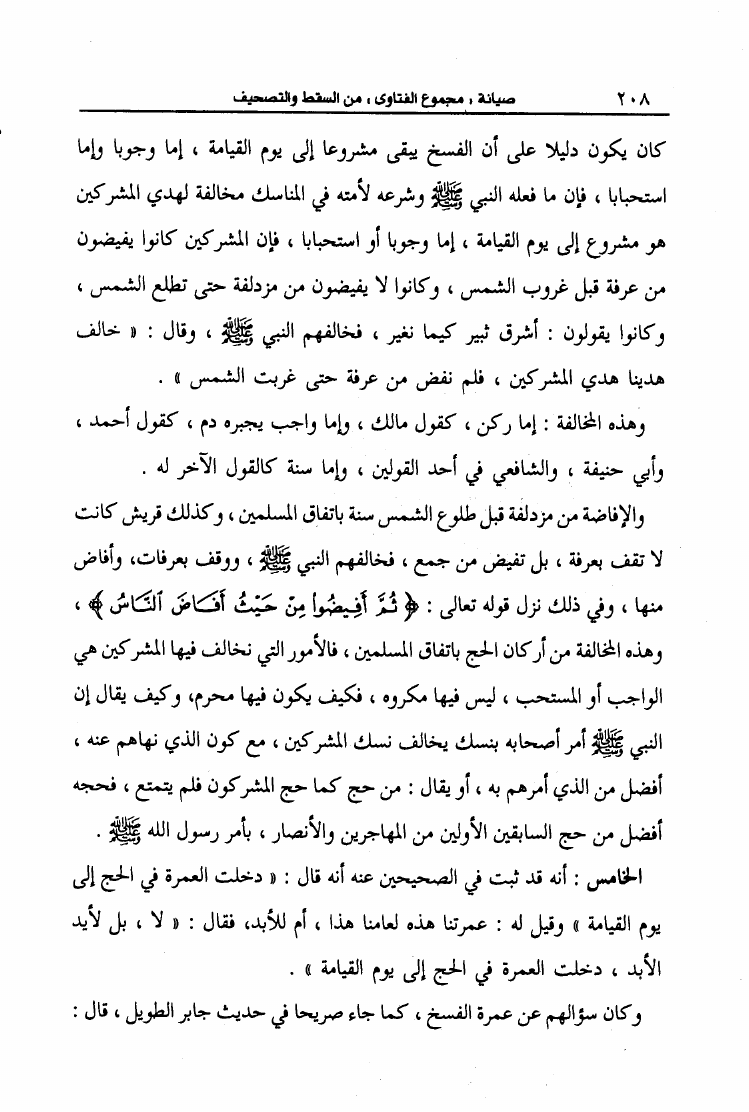 ٢٠٨ صيانة ، مجموع الفتاوى ، من السقط والتصحيف
كان يكون دليلا على أن الفسخ يبقى مشروعا إلى يوم القيامة ، إما وجوبا وإما
استحبابا ، فإن ما فعله النبي ﷺ وشرعه لأمته في المناسك مخالفة لهدي المشركين
هو مشروع إلى يوم القيامة ، إما وجوبا أو استحبابا ، فإن المشركين كانوا يفيضون
من عرفة قبل غروب الشمس ، وكانوا لا يفيضون من مزدلفة حتى تطلع الشمس ،
وكانوا يقولون : أشرق ثبير كيما نغير ، فخالفهم النبي ﷺ ، وقال : « خالف
هدينا هدي المشركين ، فلم نفض من عرفة حتى غربت الشمس » .
وهذه المخالفة : إما ركن ، كقول مالك ، وإما واجب يجبره دم ، كقول أحمد ،
وأبي حنيفة ، والشافعي في أحد القولين ، وإما سنة كالقول الآخر له .
والإفاضة من مزدلفة قبل طلوع الشمس سنة باتفاق المسلمين ، وكذلك قريش كانت
لا تقف بعرفة ، بل تفيض من جمع ، فخالفهم النبي ﷺ ، ووقف بعرفات، وأفاض
منها ، وفي ذلك نزل قوله تعالى : ﴿ ثُمَّ أَفِيضُوا مِنْ حَيْثُ أَفَاضَ ٱلنَّاسُ ﴾ ،
وهذه المخالفة من أركان الحج باتفاق المسلمين ، فالأمور التي نخالف فيها المشركين هي
الواجب أو المستحب ، ليس فيها مكروه ، فكيف يكون فيها محرم، وكيف يقال إن
النبي ﷺ أمر أصحابه بنسك يخالف نسك المشركين ، مع كون الذي نهاهم عنه ،
أفضل من الذي أمرهم به ، أو يقال : من حج كما حج المشركون فلم يتمتع ، فحجه
أفضل من حج السابقين الأولين من المهاجرين والأنصار ، بأمر رسول الله ﷺ .
الخامس : أنه قد ثبت في الصحيحين عنه أنه قال : « دخلت العمرة في الحج إلى
يوم القيامة » وقيل له : عمرتنا هذه لعامنا هذا ، أم للأبد، فقال : « لا ، بل لأبد
الأبد ، دخلت العمرة في الحج إلى يوم القيامة » .
وكان سؤالهم عن عمرة الفسخ ، كما جاء صريحا في حديث جابر الطويل ، قال :